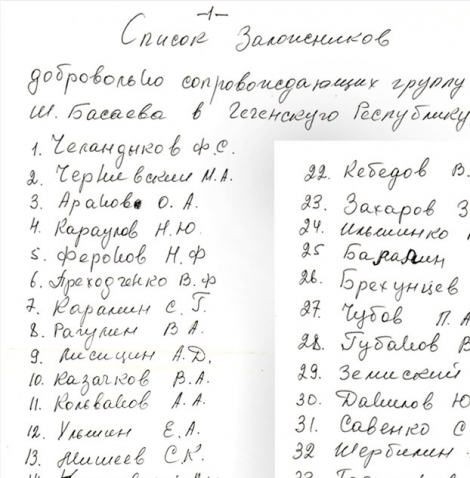 -1-
Список Заложников
добровольно сопровождающих группу
Ш. Басаева в Чеченскую Республику
1. Челандыков Ф.С.
2. Черневский М.А.
3. О. А.
4. Караулов Н.Ю.
5. Н.Ф
6. В.Ф
7. Карамин С. Г.
8. Рагулин В А.
9. Лисицин А.Д.
10. Казачков В.А.
11. А. А.
12. Ульшин Е.А.
13. Мишеев С.К.
22. Кебедов В.
23. Захаров З
24. Ильшинко
25
26. Брехунцев
27. Чубов П. А
28. Губанов В
29. Земиский
30. Данилов Ю
31. Савенко С
32 Щербилин